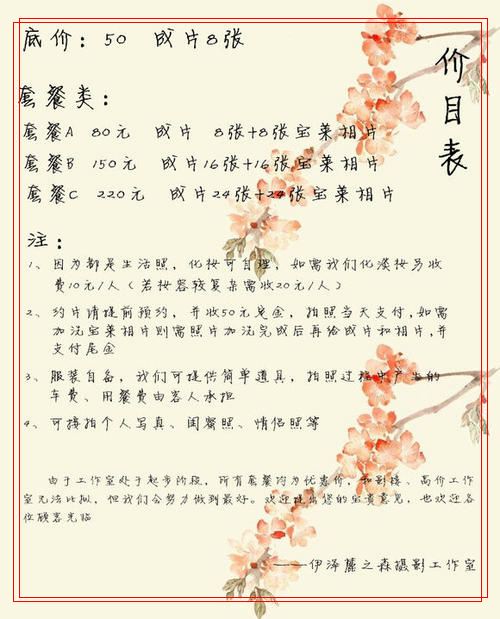 价目表
底价：50 成片8张
套餐类：
套餐A 80元 成片 8张+8张宝莱相片
套餐B 150元 成片16张+16张宝莱相片
套餐C 220元 成片24张+24张宝莱相片
注：
1、因为都是生活照，化妆可自理，如需我们化淡妆另收
费10元/1人（若妆容较复杂需收20元/1人）
2、约片请提前预约，并收50元定金，拍照当天支付，如需
加洗宝莱相片则需照片加洗完成后再给成片和相片，并
支付尾金
3、服装自备，我们可提供简单道具，拍照过程中产生的
车费、用餐费由客人承担
4、可接拍个人写真、闺蜜照、情侣照等
由于工作室处于起步阶段，所有套餐均为优惠价，和影楼、高价工作
室无法比拟，但我们会努力做到最好。欢迎提出您的宝贵意见，也欢迎各
位顾客光临
——伊泽麓之森摄影工作室